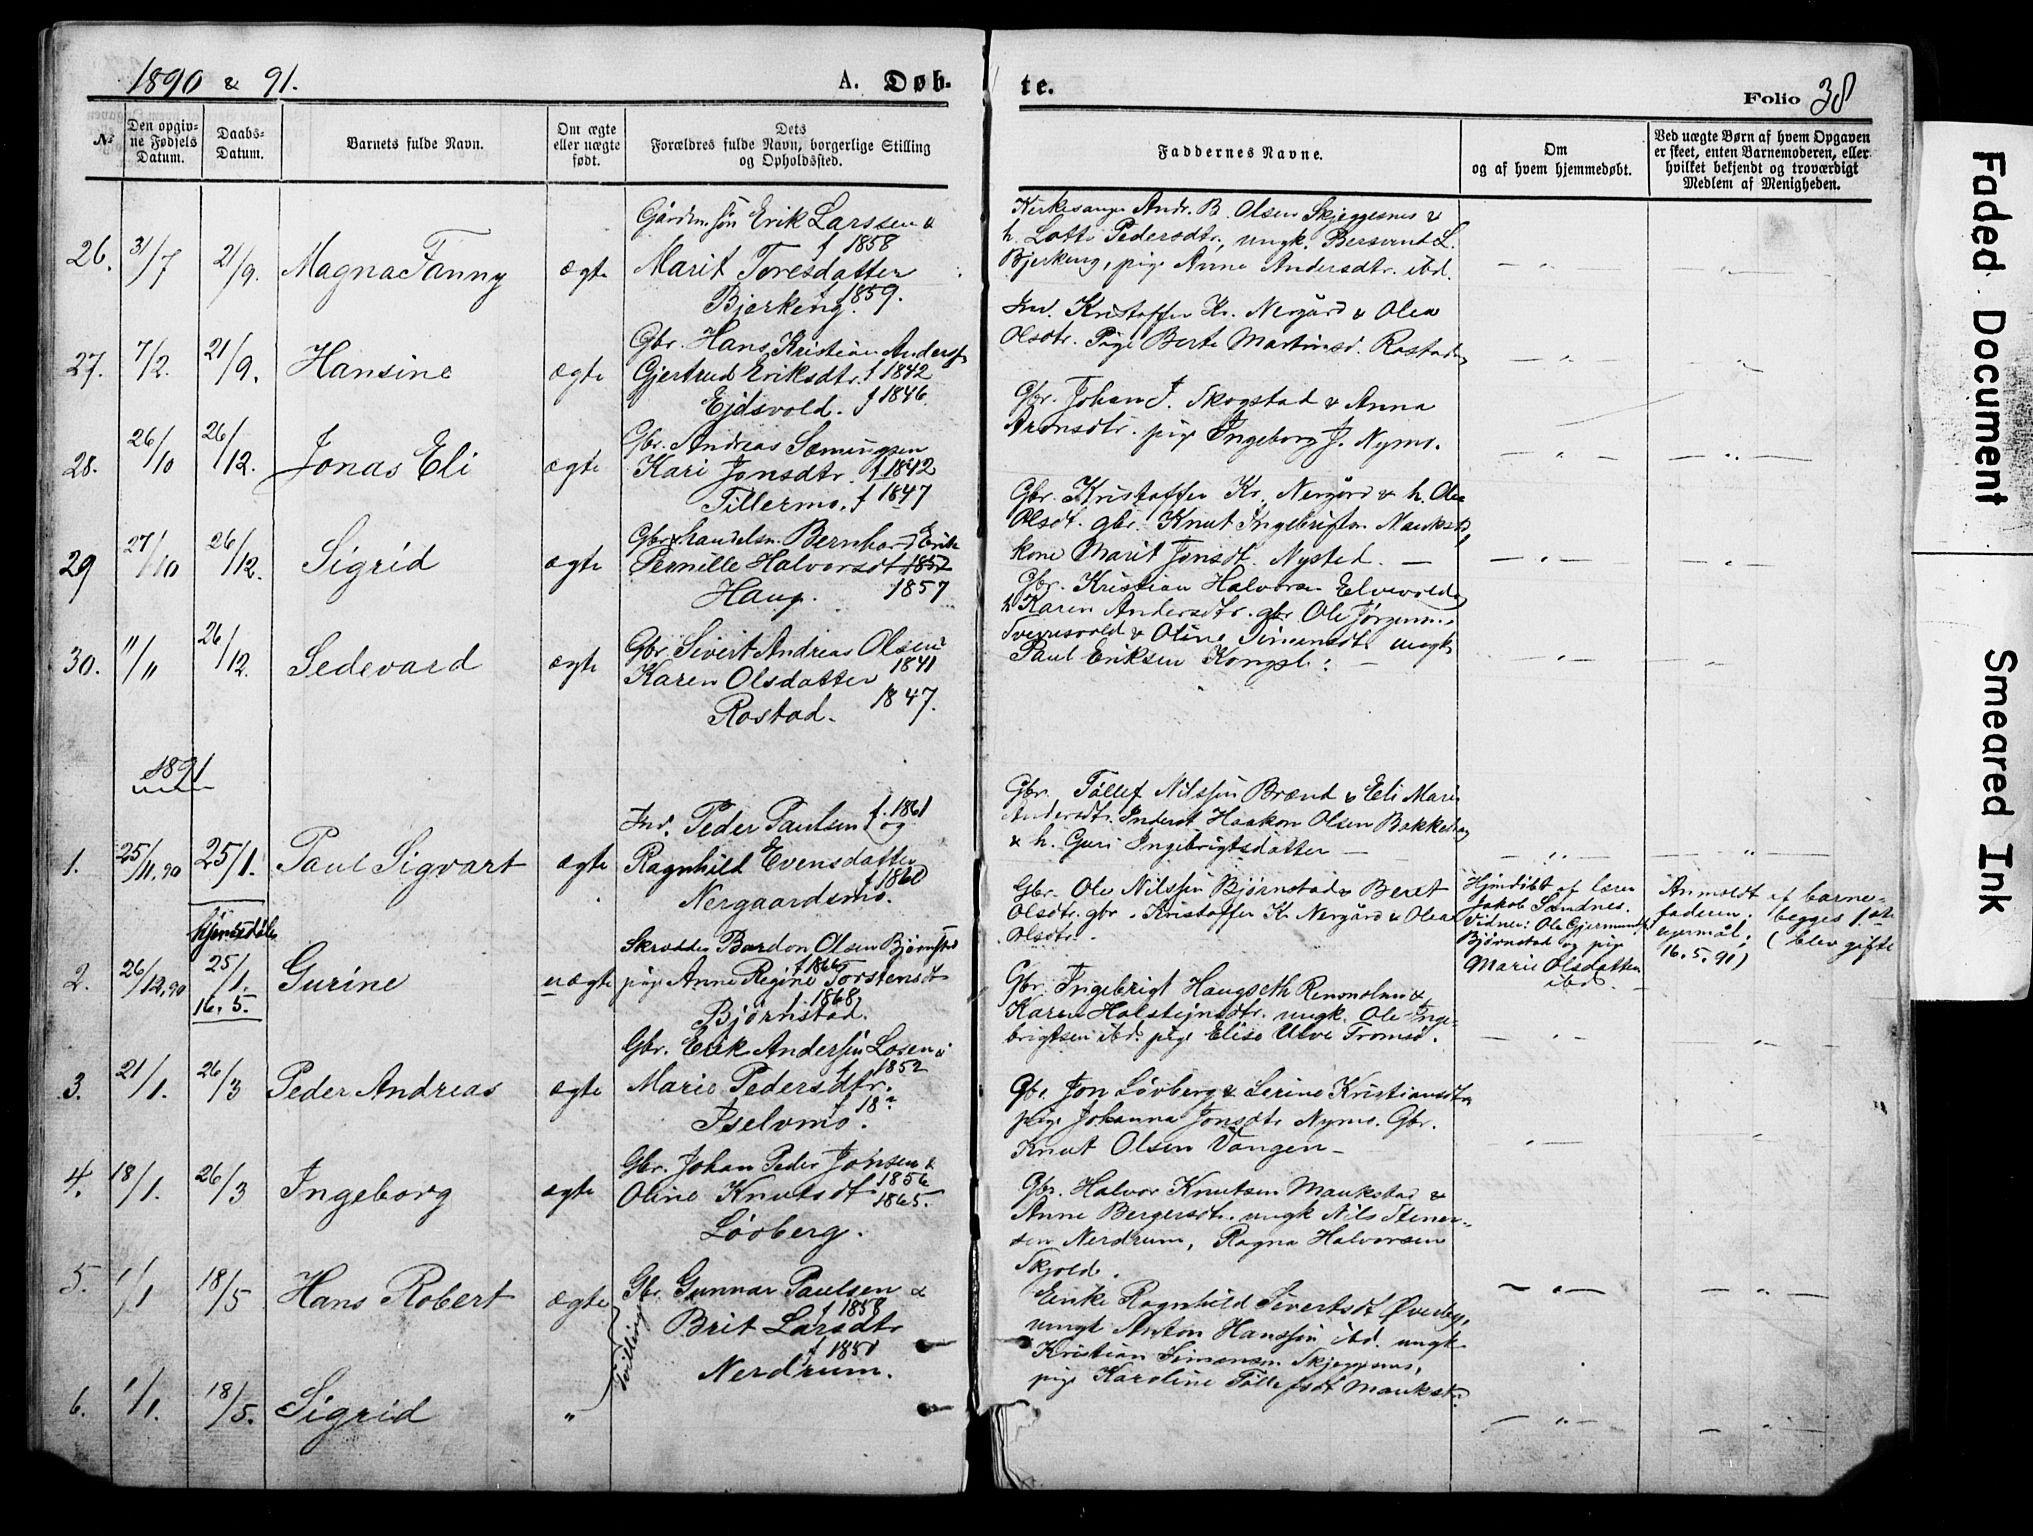 1890 & 91.
A. Døb-
te.
Folio 38
№
Den opgiv-
ne Fødsels
Datum.
Daabs-
Datum.
Barnets fulde Navn.
Om ægte
eller uægte
født.
Dets
Forældres fulde Navn, borgerlige Stilling
og Opholdssted.
Faddernes Navne.
Om
og af hvem hjemmedøbt.
Ved uægte Børn af hvem Opgaven
er skeet, enten Barnemoderen, eller
hvilket bekjendt og troværdigt
Medlem af Menigheden.
26. 31/7 21/9. Magna Fanny ægte
Gårdm. søn Erik Larssen &
f 1858
Marit Toresdatter
f 1859.
Bjerkeng.
Kirkesanger Andr. B. Olsen Skjeggesnes &
h. Lotte Pedersdtr., ungk. Bersvend L.
Bjerkeng, pige Anne Andersdtr. ibd.
27. 7/2. 21/9. Hansine ægte
Gbr. Hans Kristian Anders
Gjertrud Eriksdtr. f 1842
Ejdsvold. f 1846.
Ind. Kristoffer Kr. Nergård & Olea
Olsdtr. Pige Berte Martinsd. Rostad
28. 26/10 26/12. Jonas Eli ægte
Gbr. Andreas Sæmingsen
Kari Jonsdtr. f 1842
Tillermo. f 1847
Gbr. Johan J. Skogstad & Anna
Aronsdtr. pige Ingeborg J. Nymo.
29 27/10 26/12. Sigrid ægte
Gbr & handelsm. Bernhard Erik
Pernille Halvorsdt 1857
Haug. 1857
Gbr. Kristoffer Kr. Nergård & h. Olea
Olsdt. gbr. Knut Ingebrigtsn Maukst
kone Marit Jonsdt. Nysted. —
30. 11/11 26/12. Sedevard ægte
Gbr. Sivert Andreas Olsen
1841
Karen Olsdatter
1847.
Rostad.
Gbr. Kristian Halvorsen Elvevold
h Karen Andersdtr. gbr Ole Jørgensen
& Oline Simensdt. ungk
Paul Eriksen Kongsl:
1891
1. 25/11.90 25/1. Paul Sigvart ægte
Ind. Peder Paulsen f. 1861
og
Ragnhild Evensdatter
f 1860
Nergaardsmo.
Gbr. Tøllef Nilssøn Brænd & Eli Marie
Andersdtr. Inderst Haakon Olsen Bakkehaug
& h. Guri Ingebrigtsdatter —
2. 26/12.90 hjemmedøbt 25/1. 16.5. Gurine uægte
Skrædder Bardon Olsen Bjørnstad
f 1866
pige Anne Regine Torstensdt
f. 1868
Bjørnstad.
Gbr. Ole Nilssøn Bjørnstad & Beret
Olsdtr. gbr. Kristoffer Kr. Nergård & Olea
Olsdtr. -
Hjmdøbt af lærer
Jakob Sandnes.
Vidner: Ole Gjermunds
Bjørnstad og pige
Marie Olsdatter
ibd.
Anmeldt af barne-
faderen; begges 1ste
lejermål; (blev gifte
16.5.91)
3. 21/1. 26/3 Peder Andreas ægte
Gbr. Erik Anderssøn Loren &
f 1852
Marie Pedersdtr.
f 18
Iselvmo.
Gbr. Ingebrigt Haugseth &
Karen Holstejnsdtr. ungk. Ole Inge-
brigtsen ibd. pige Elise Ulve Tromsø.
4. 18/1. 26/3 Ingeborg ægte
Gbr. Johan Peder Jonsen &
1856
Oline Knutsdt 1865.
Løvberg.
Gbr. Jon Løvberg & Serine Kristiansdtr
pige Johanna Jonsdtr Nymo. Gbr.
Knut Olsen Vangen —
5. 1/1 18/5 Hans Robert ægte
Gbr. Gunnar Paulsen &
f 1858
Brit Larsdtr
f 1851
Nerdrum.
Tvillinger
Gbr. Halvor Knutsen Maukstad &
Anne Bergersdtr. ungk Nils Stener-
sen Nerdrum, Ragna Halvorsen
Skjold.
6. 1/1. 18/5. Sigrid "
Enke Ragnhild Sivertsdt Øverby,
ungk Anton Hanssøn ibd. ungk
Kristian Simonsen Skjeggesnes,
pige Karoline Tøllefsdt Maukst.
Faded Document
Smeared Ink